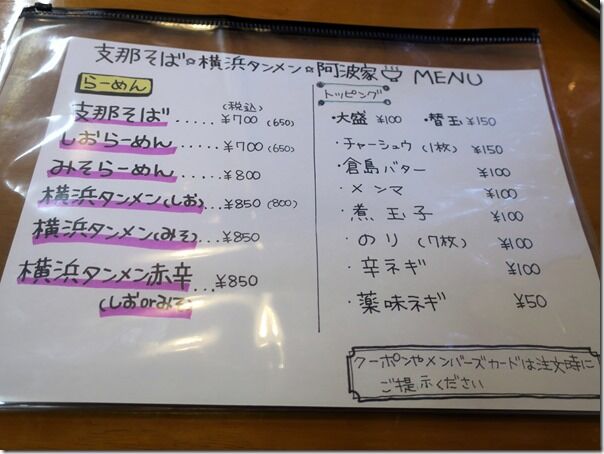 支那そば☆横浜タンメン☆阿波家 MENU
らーめん
(税込)
支那そば.....¥700(650)
しおらーめん.....¥700(650)
みそらーめん...¥800
横浜タンメン(しお)...¥850(800)
横浜タンメン(みそ)...¥850
横浜タンメン赤辛...¥850
(しおorみそ)
トッピング
・大盛 ¥100 ・替玉 ¥150
・チャーシュウ(1枚) ¥150
・倉島バター ¥100
・メンマ ¥100
・煮玉子 ¥100
・のり(7枚) ¥100
・辛ネギ ¥100
・薬味ネギ ¥50
クーポンやメンバーズカードは注文時に
ご提示ください